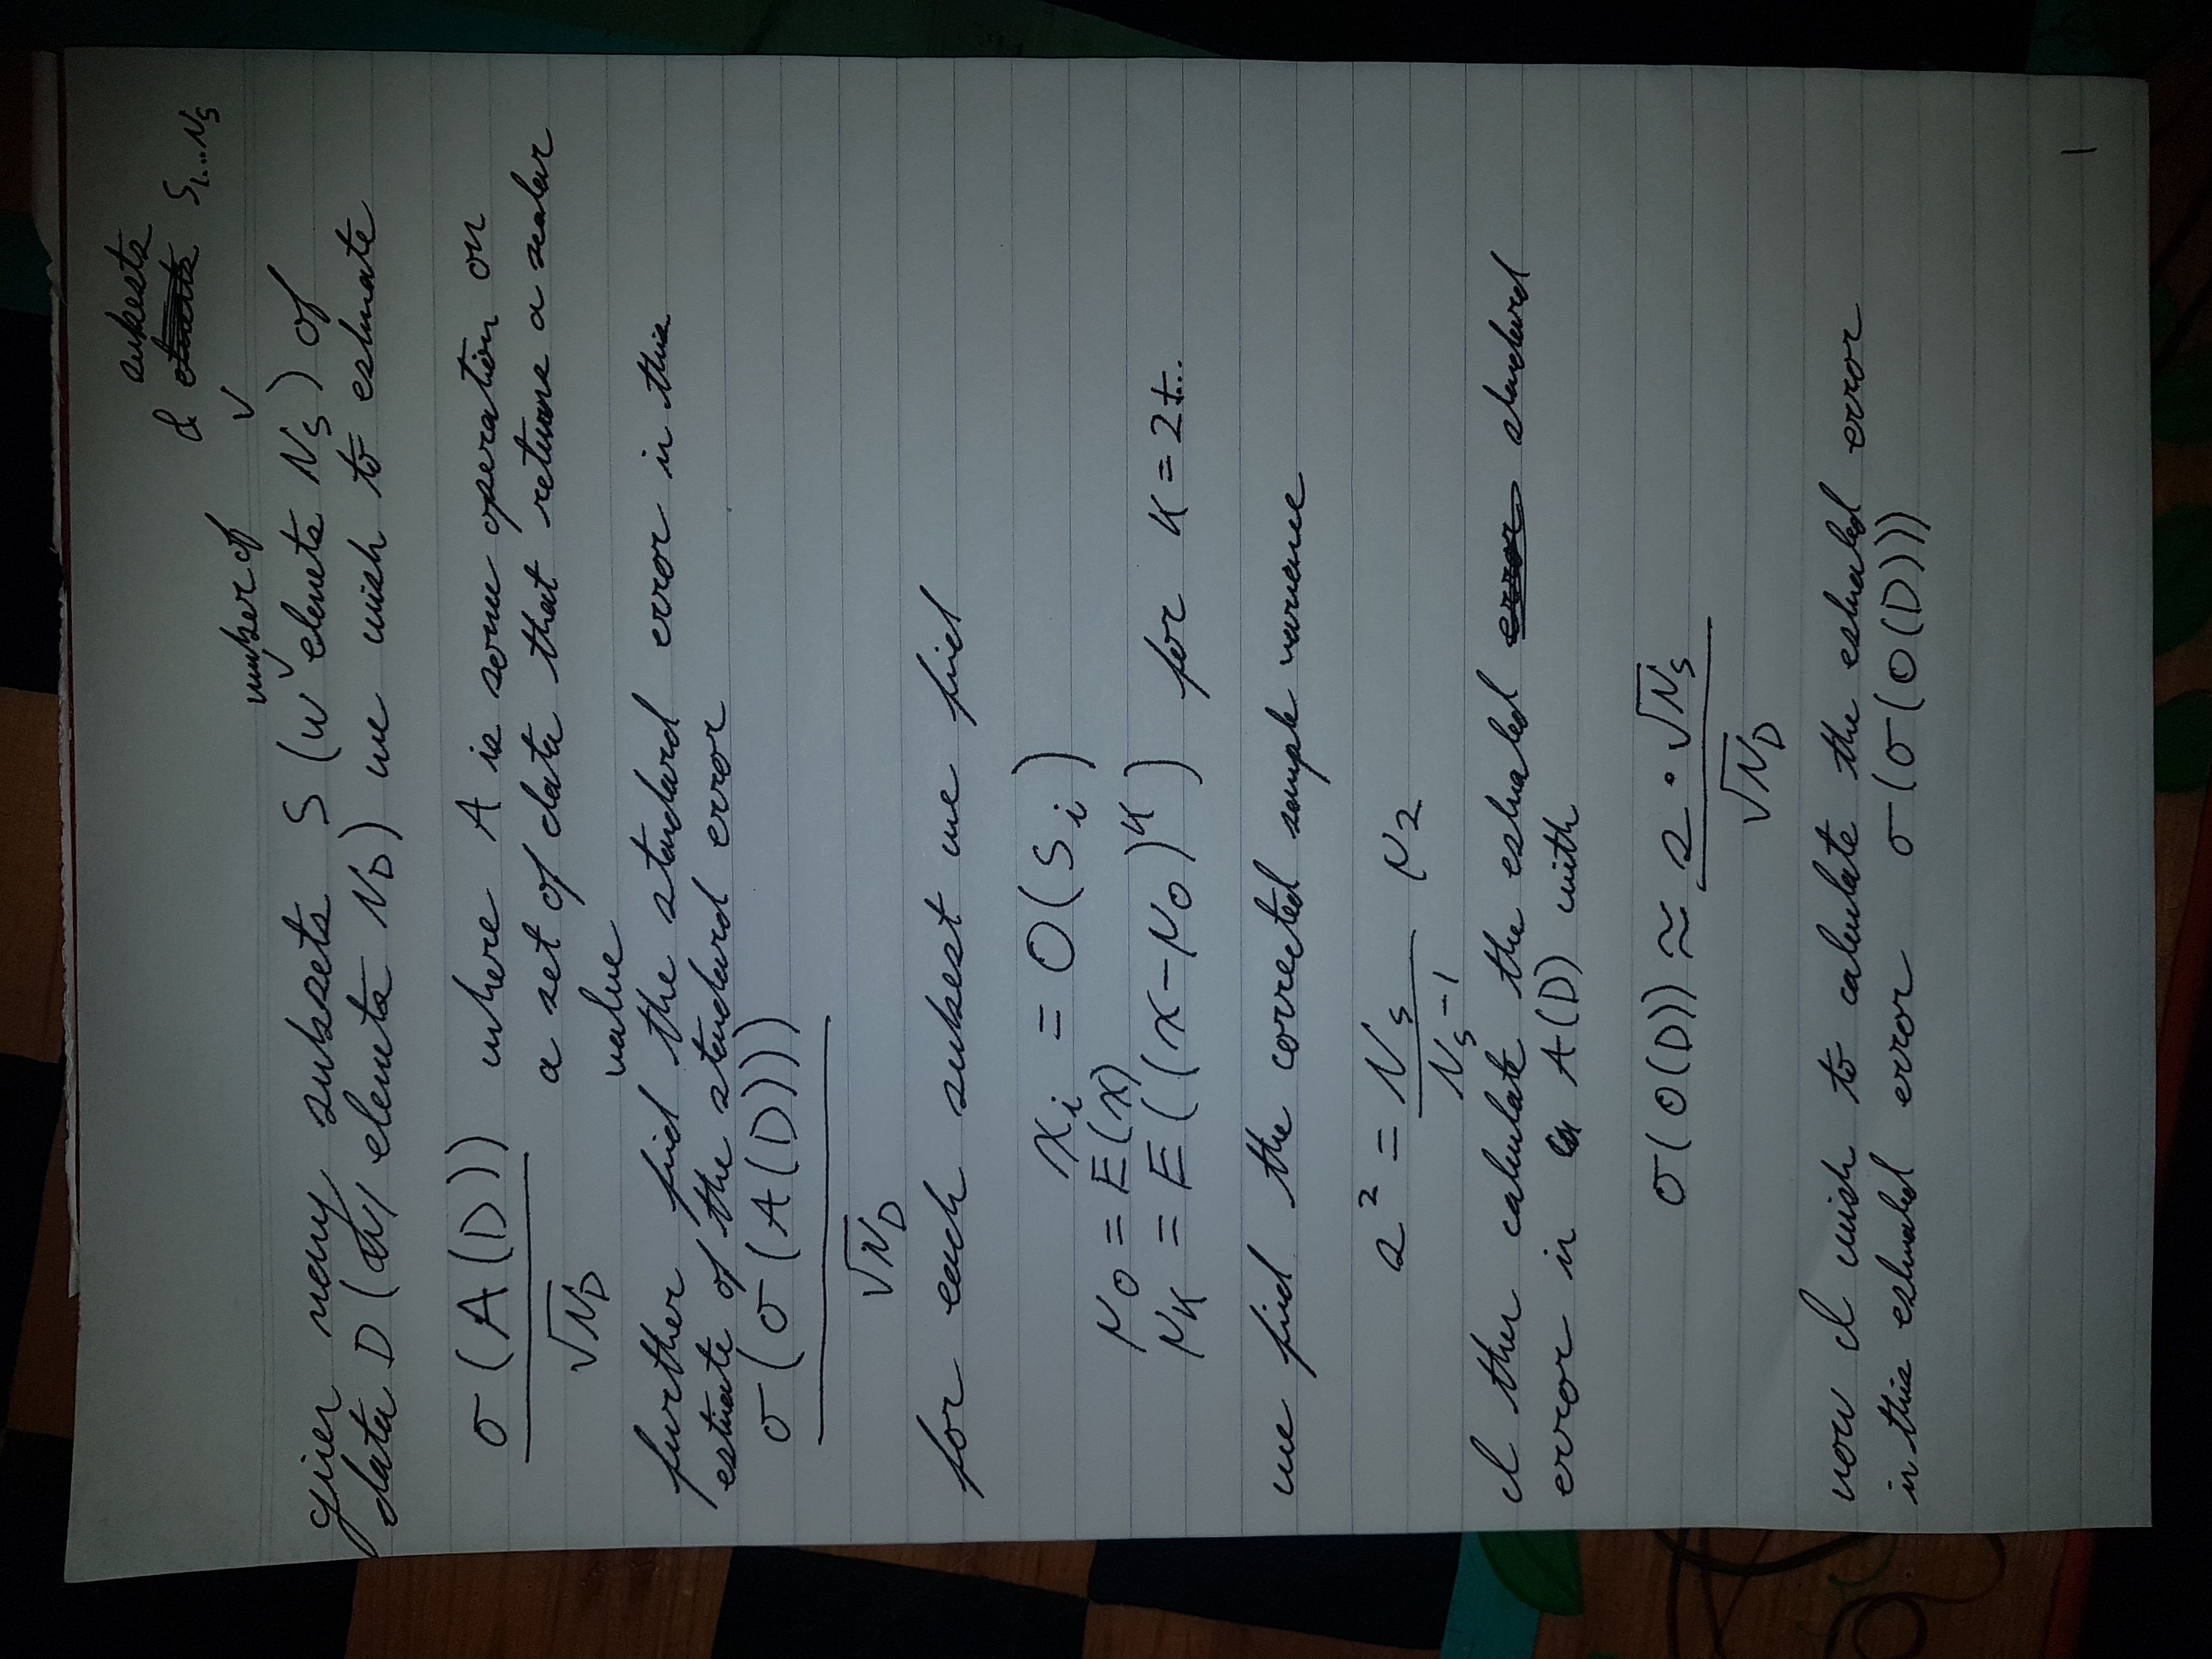 subests
& S₁...Nₛ
number of ✓
given many subsets S (w elements Nₛ) of
data D (w/ elements N_D) we wish to estimate
σ(A(D)) / √N_D where A is some operation on
a set of data that returns a scalar
value
further find the standard error in this
estimate of the standard error
σ(σ(A(D))) / √N_D
for each subest we find
x_i = O(S_i)
μ_0 = E(x)
μ_K = E((x-μ_0)^K) for K = 2+...
we find the corrected sample variance
s² = Nₛ / (Nₛ-1) μ_2
I then calculate the estimated standard
error in A(D) with
σ(O(D)) ≈ s · √Nₛ / √N_D
now I wish to calculate the estimated error
in this estimated error σ(σ(O(D)))
1